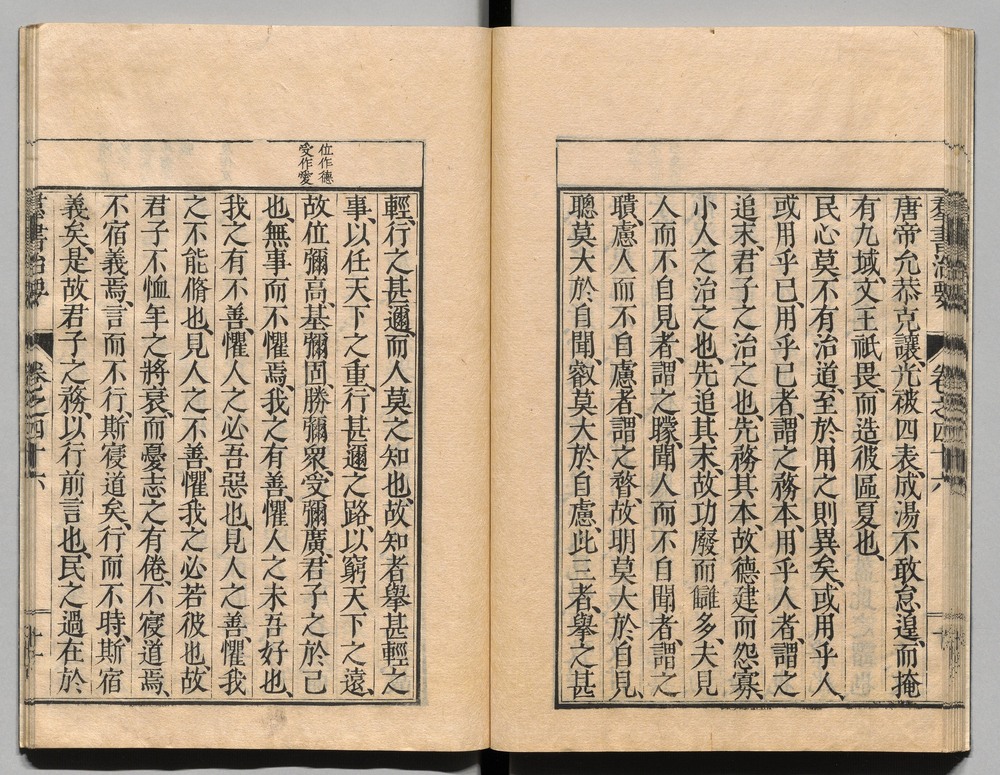 群書治要 卷之四十六 十
唐帝允恭克讓、光被四表、成湯不敢怠遑、而掩
有九域、文王祇畏、而造彼區夏也、
民心莫不有治道、至於用之則異矣、或用乎人、
或用乎已、用乎已者、謂之務本、用乎人者、謂之
追末、君子之治之也、先務其本、故德建而怨寡、
小人之治之也、先追其末、故功廢而讎多、夫見
人而不自見者、謂之矇、聞人而不自聞者、謂之
聵、慮人而不自慮者、謂之瞀、故明莫大於自見、
聰莫大於自聞、叡莫大於自慮、此三者、舉之甚
位作德
受作愛
輕、行之甚邇、而人莫之知也、故知者舉甚輕之
事、以任天下之重、行甚邇之路、以窮天下之遠、
故位彌高、基彌固、勝彌衆、受彌廣、君子之於己
也、無事而不懼焉、我之有善、懼人之未吾好也、
我之有不善、懼人之必吾惡也、見人之善、懼我
之不能脩也、見人之不善、懼我之必若彼也、故
君子不恤年之將衰、而憂志之有倦、不寑道焉、
不宿義焉、言而不行、斯寑道矣、行而不時、斯宿
義矣、是故君子之務、以行前言也、民之過在於
羣書治要 卷之四十六 十一